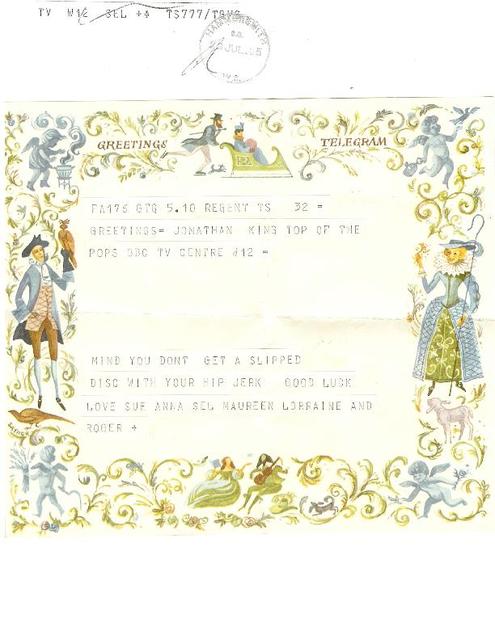 TV W12 SEL ++ TS777/
HAMMERSMITH
JUL
W.6
GREETINGS TELEGRAM
FA176 GTG 5.10 REGENT TS 32 =
GREETINGS= JONATHAN KING TOP OF THE
POPS BBC TV CENTRE W12 =
MIND YOU DONT GET A SLIPPED
DISC WITH YOUR HIP JERK GOOD LUCK
LOVE SUE ANNA SEL MAUREEN LORRAINE AND
ROGER +